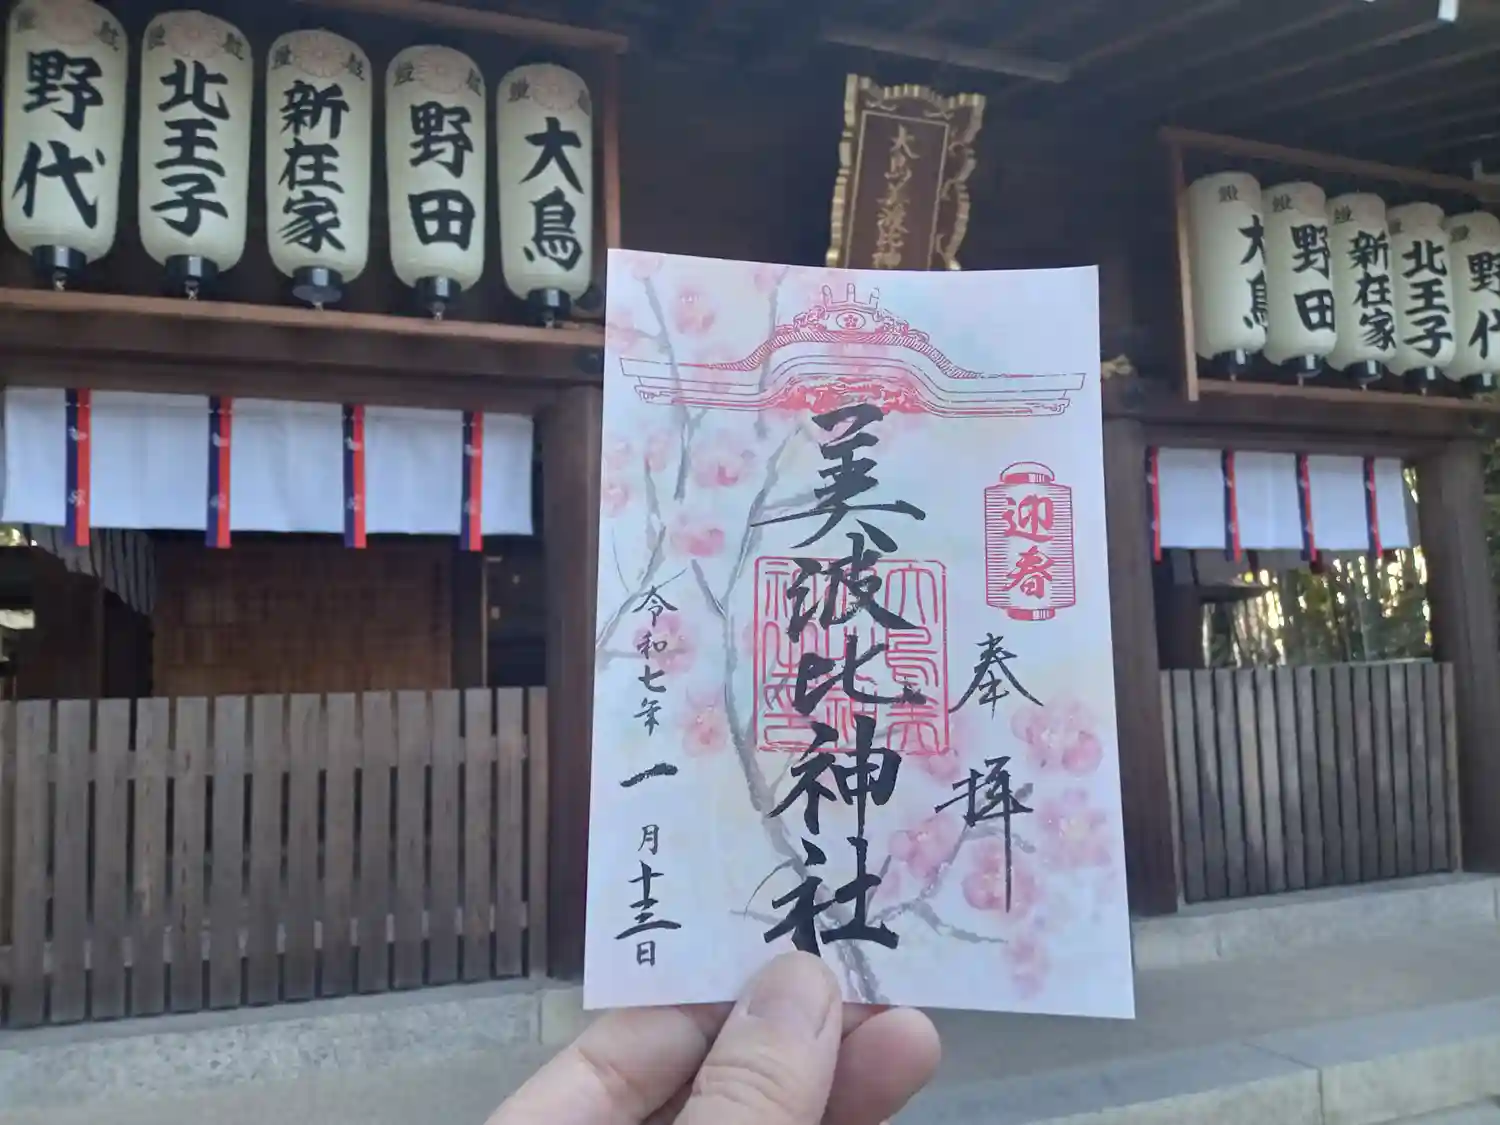 野代
北王子
新在家
野田
大鳥
大鳥美波比神
大鳥
野田
新在家
北王子
野代
迎春
奉拝
美波比神社
令和七年一月十三日